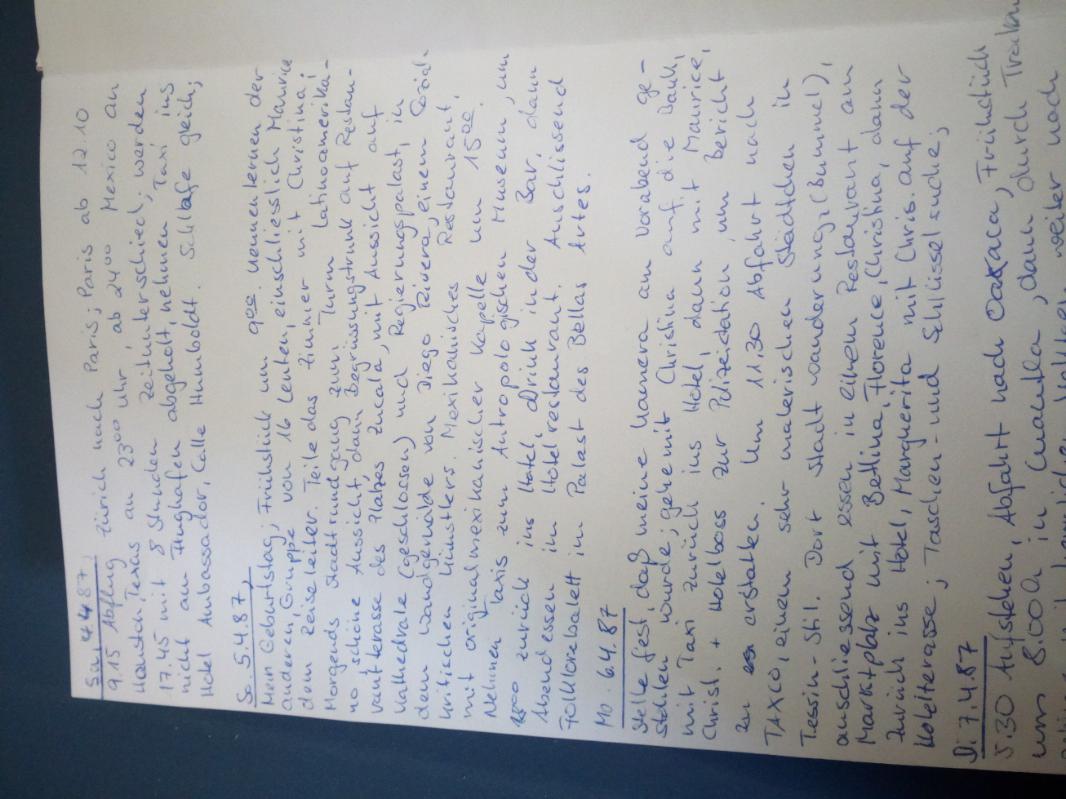 Sa. 4.4.87.
9.15 Abflug Zürich nach Paris; Paris ab 12.10
Houston, Texas an 23⁰⁰ Uhr, ab 24⁰⁰ Mexico an
17.45 mit 8 Stunden Zeitunterschied, werden
nicht am Flughafen abgeholt, nehmen Taxi ins
Hotel Ambassador, Calle Humboldt. Schlafe gleich;
So. 5.4.87,
Mein Geburtstag; Frühstück um 9⁰⁰. Kennenlernen der
anderen, Gruppe von 16 Leuten, einschliesslich Maurice
dem Reiseleiter. Teile das Zimmer mit Christina;
Morgends Stadtrundgang zum Turm Latinoamerika-
no schöne Aussicht, dann Begrüssungstrunk auf Restau-
rantterasse des Platzes Zucala, mit Aussicht auf
Kathedrale (geschlossen) und Regierungspalast, in
dem Wandgemälde von Diego Rivera, einem
kritischen Künstlers. Mexikanisches Restaurant,
mit original mexikanischer Kapelle um 15⁰⁰.
Nehmen Taxis zum Antropologischen Museum, um
zurück ins Hotel, Drink in der Bar, dann
Abendessen in Hotelrestaurant. Anschliessend
Folklorebalett in Palast des Bellas Artes.
Mo. 6.4.87
Stelle fest, daß meine Kamera am Vorabend ge-
stohlen wurde; gehe mit Christina auf die Bank,
mit Taxi zurück ins Hotel, dann mit Maurice,
Christ. + Hotelboss zur Polizeistation, um Bericht
zu erstatten. Um 11.30 Abfahrt nach
TAXCO, einem sehr malerischen Städtchen in
Tessin-Stil. Dort Stadtwanderung, (Bummel),
anschliessend essen in einem Restaurant am
Marktplatz mit Bettina, Florence, Christina, dann
zurück ins Hotel, Margherita mit Chris. auf der
Hotelterasse; Taschen- und Schlüsselsuche;
Di 7.4.87
5.30 Aufstehen, Abfahrt nach Oaxaca, Frühstück
um 8.00 in Cuautla, dann durch
weiter nach